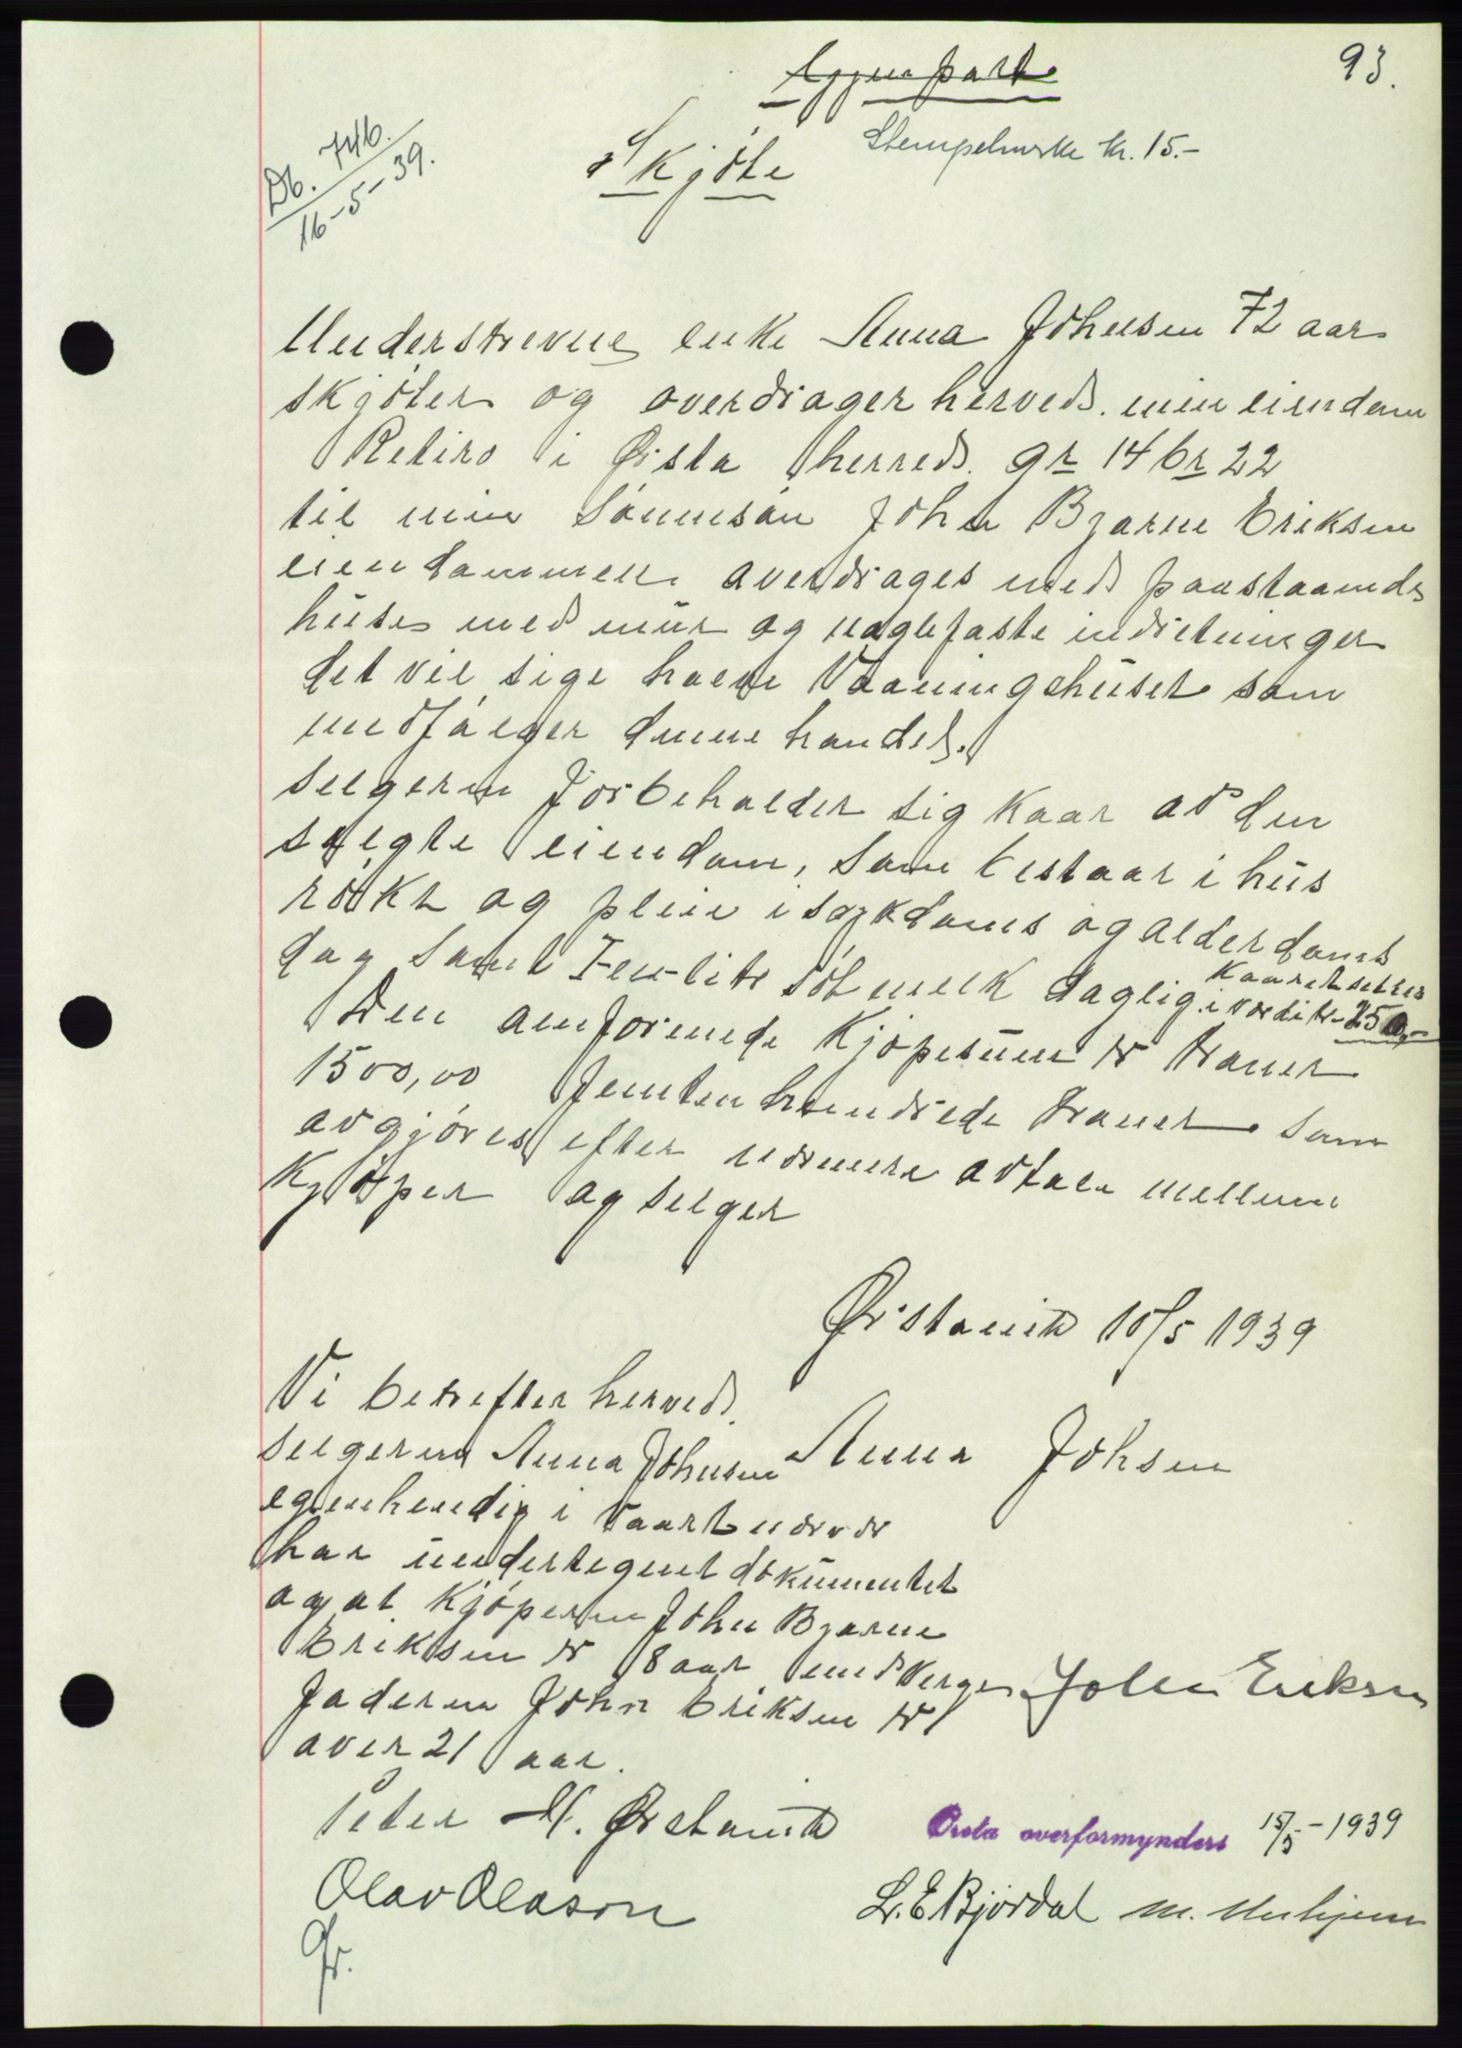 93.
Gjenpart
Stempelmerke kr. 15.-
Skjöte
Db. 746.
16-5-39.
Understrevne enke Anna Johnsen 72 aar
skjöter og overdrager herved min eiendom
Retiro i Ørsta herred. gr 14 br 22
til min Sönnesön John Bjarne Eriksen
eiendommen averdrages med paastaaende
huse med mur og naglefaste indretninger
det vil sige halve Vaaningshuset som
medfölger denne handel.
selgeren forbeholder sig kaar av den
solgte eiendom, Som bestaar i hus
rökt og pleie i sygdoms og alderdoms
dag samt En liter söt melk daglig. Kaaret settes
i verdi kr 250,-
Den omforenede Kjöpesum er Kroner
1500,00 femtenhundrede Kroner som
avgjöres efter nermere avtale mellem
Kjöper og selger
Ørstavik 10/5 1939
Vi betrefter herved
selgeren Anna Johnsen
Anna Johsen
egenhendig i vaart nerver
har undertegnet dokumentet
og at Kjöperen John Bjarne
Eriksen er 8 aar med verge
John Eriksen
faderen John Eriksen er
over 21 aar.
Peter M. Ørstavik
Ørsta overformynderi 15/5-1939
Olav Olason
L. E. Bjørdal M.